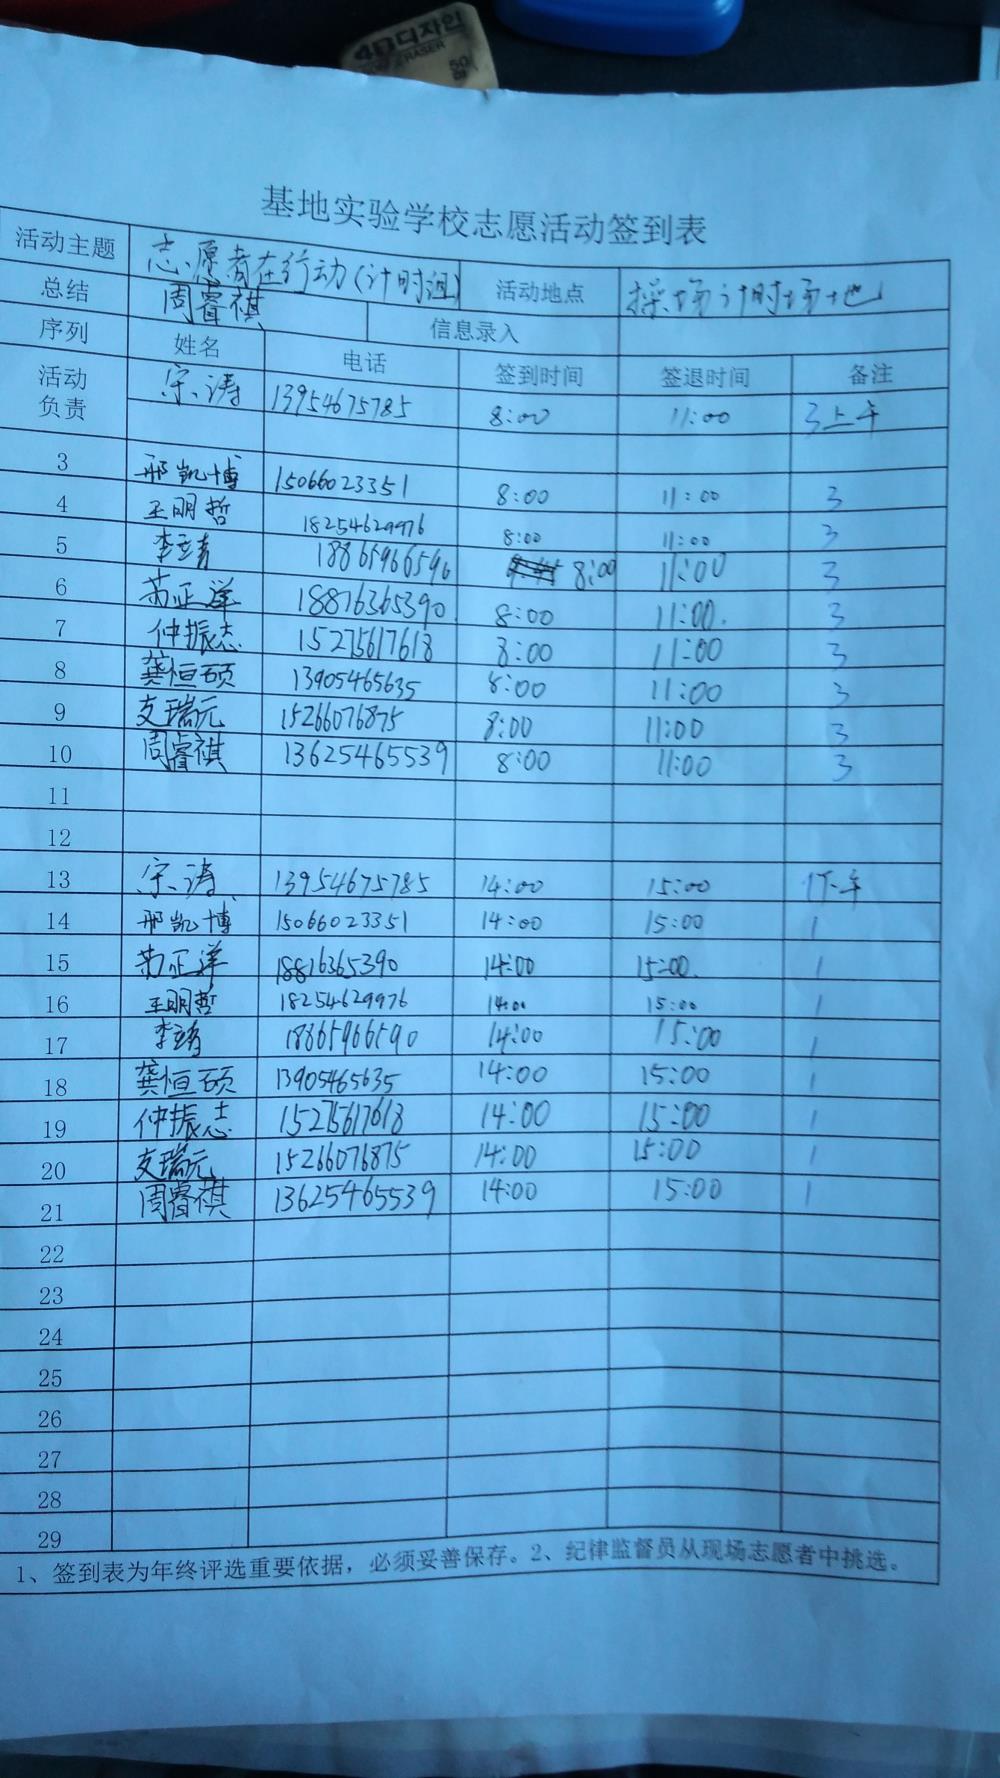 4B디자인
ERASER
50
기지实验学校志愿活动签到表
活动主题 志愿者在行动(计时组) 活动地点 操场计时场地
总结 周睿祺 信息录入
序列 姓名 电话 签到时间 签退时间 备注
活动负责 宋涛 13954675785 8:00 11:00 3上午
3 邢凯博 15066023351 8:00 11:00 3
4 王明哲 18254629976 8:00 11:00 3
5 李立青 18865966590 8:00 11:00 3
6 苟正洋 18816365390 8:00 11:00 3
7 仲振志 15275617618 8:00 11:00 3
8 龚恒硕 13905465635 8:00 11:00 3
9 支瑞元 15266076875 8:00 11:00 3
10 周睿祺 13625465539 8:00 11:00 3
11
12
13 宋涛 13954675785 14:00 15:00 1下午
14 邢凯博 15066023351 14:00 15:00 1
15 苟正洋 18816365390 14:00 15:00 1
16 王明哲 18254629976 14:00 15:00 1
17 李立青 18865966590 14:00 15:00 1
18 龚恒硕 13905465635 14:00 15:00 1
19 仲振志 15275617618 14:00 15:00 1
20 支瑞元 15266076875 14:00 15:00 1
21 周睿祺 13625465539 14:00 15:00 1
22
23
24
25
26
27
28
29
1、签到表为年终评选重要依据，必须妥善保存。2、纪律监督员从现场志愿者中挑选。